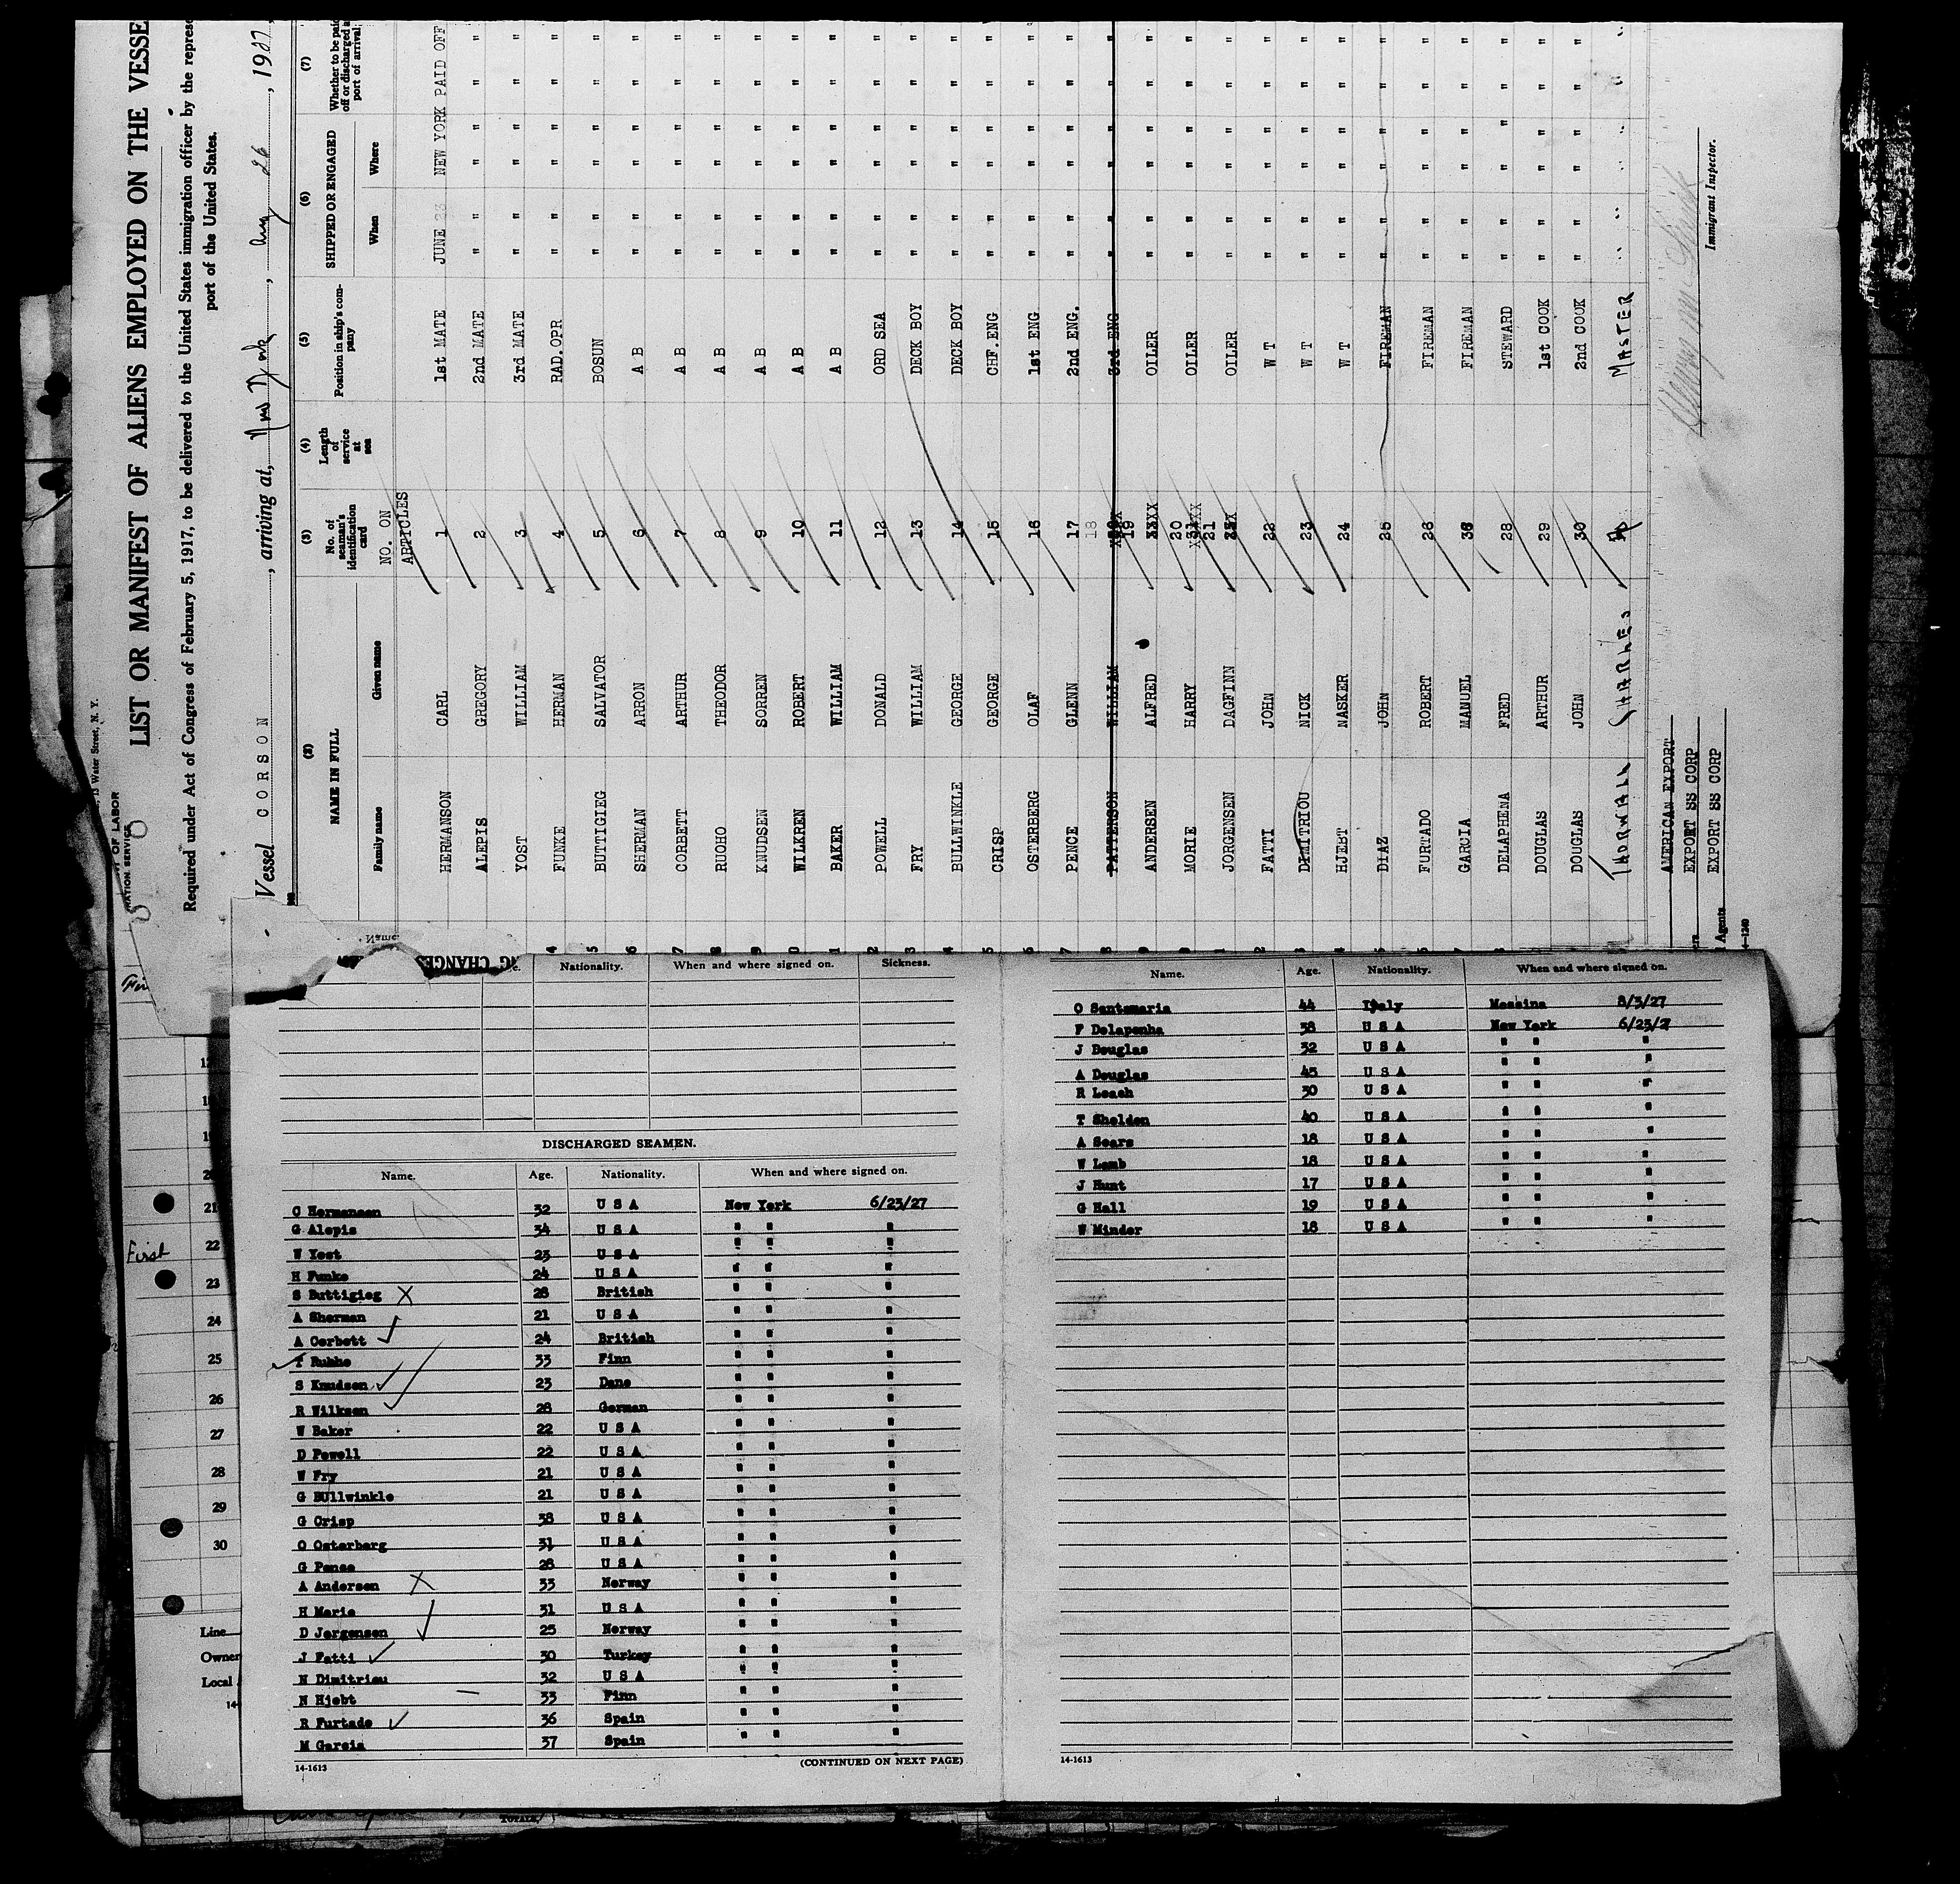 LIST OR MANIFEST OF ALIENS EMPLOYED ON THE VESSE
Required under Act of Congress of February 5, 1917, to be delivered to the United States immigration officer by the represe
port of the United States.
Vessel CORSON, arriving at, New York, Aug 26, 1927
(2) (3) (4) (5) (6) (7)
NAME IN FULL No. of seaman's identification card Length of service at sea Position in ship's company SHIPPED OR ENGAGED Whether to be paid off or discharged at port of arrival
Family name Given name When Where
NO. ON ARTICLES
HERMANSON CARL 1 1st MATE JUNE 23 NEW YORK PAID OFF
ALEPIS GREGORY 2 2nd MATE " " " " " "
YOST WILLIAM 3 3rd MATE " " " " " "
FUNKE HERMAN 4 RAD.OPR " " " " " "
BUTTIGIEG SALVATOR 5 BOSUN " " " " " "
SHERMAN ARRON 6 A B " " " " " "
CORBETT ARTHUR 7 A B " " " " " "
RUOHO THEODOR 8 A B " " " " " "
KNUDSEN SOREN 9 A B " " " " " "
WILKREN ROBERT 10 A B " " " " " "
BAKER WILLIAM 11 A B " " " " " "
POWELL DONALD 12 ORD SEA " " " " " "
FRY WILLIAM 13 DECK BOY " " " " " "
BULLWINKLE GEORGE 14 DECK BOY " " " " " "
CRISP GEORGE 15 CHF.ENG " " " " " "
OSTERBERG OLAF 16 1st ENG " " " " " "
PENCE GLENN 17 2nd ENG. " " " " " "
PATTERSON WILLIAM 18 3rd ENG " " " " " "
ANDERSEN ALFRED 19 OILER " " " " " "
MORIE HARRY 20 OILER " " " " " "
JORGENSEN DAGFINN 21 OILER " " " " " "
FATTI JOHN 22 W T " " " " " "
DIMITRIOU NICK 23 W T " " " " " "
HJEBT NASKER 24 W T " " " " " "
DIAZ JOHN 25 FIREMAN " " " " " "
FURTADO ROBERT 26 FIREMAN " " " " " "
GARCIA MANUEL FIREMAN " " " " " "
DELAPHENA FRED 28 STEWARD " " " " " "
DOUGLAS ARTHUR 29 1st COOK " " " " " "
DOUGLAS JOHN 30 2nd COOK " " " " " "
THORWALL CHARLES MASTER " " " " " "
AMERICAN EXPORT
EXPORT SS CORP
EXPORT SS CORP
Agents
Immigrant Inspector.
Nationality. When and where signed on. Sickness.
DISCHARGED SEAMEN.
Name. Age. Nationality. When and where signed on.
C Hermansen 32 U S A New York 6/23/27
G Alepis 34 U S A " " "
W Yost 23 U S A " " "
H Funke 24 U S A " " "
S Buttigieg X 28 British " " "
A Sherman 21 U S A " " "
A Corbett 24 British " " "
T Rukho 33 Finn " " "
S Knudsen 23 Dane " " "
R Wilksen 28 German " " "
W Baker 22 U S A " " "
D Powell 22 U S A " " "
W Fry 21 U S A " " "
G BUllwinkle 21 U S A " " "
G Crisp 38 U S A " " "
O Osterberg 31 U S A " " "
G Pense 28 U S A " " "
A Andersen X 33 Norway " " "
H Marie 31 U S A " " "
D Jorgensen 25 Norway " " "
J Fatti 30 Turkey " " "
N Dimitriou 32 U S A " " "
N Hjebt 33 Finn " " "
R Furtado 36 Spain " " "
M Garcia 37 Spain " " "
14-1613 (CONTINUED ON NEXT PAGE)
Name. Age. Nationality. When and where signed on.
O Santamaria 44 Italy Messina 8/3/27
F Delapenha 38 U S A New York 6/23/2
J Douglas 32 U S A " " "
A Douglas 45 U S A " " "
R Leach 30 U S A " " "
T Shelden 40 U S A " " "
A Sears 18 U S A " " "
W Lamb 18 U S A " " "
J Hunt 17 U S A " " "
G Hall 19 U S A " " "
W Minder 18 U S A " " "
14-1613
20
21
First 22
23
24
25
26
27
28
29
30
Line
Owner
Local